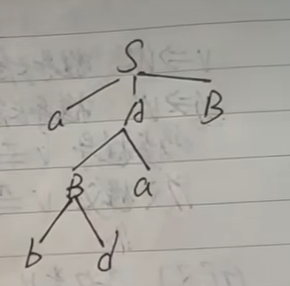 S
a A B
B a
b d